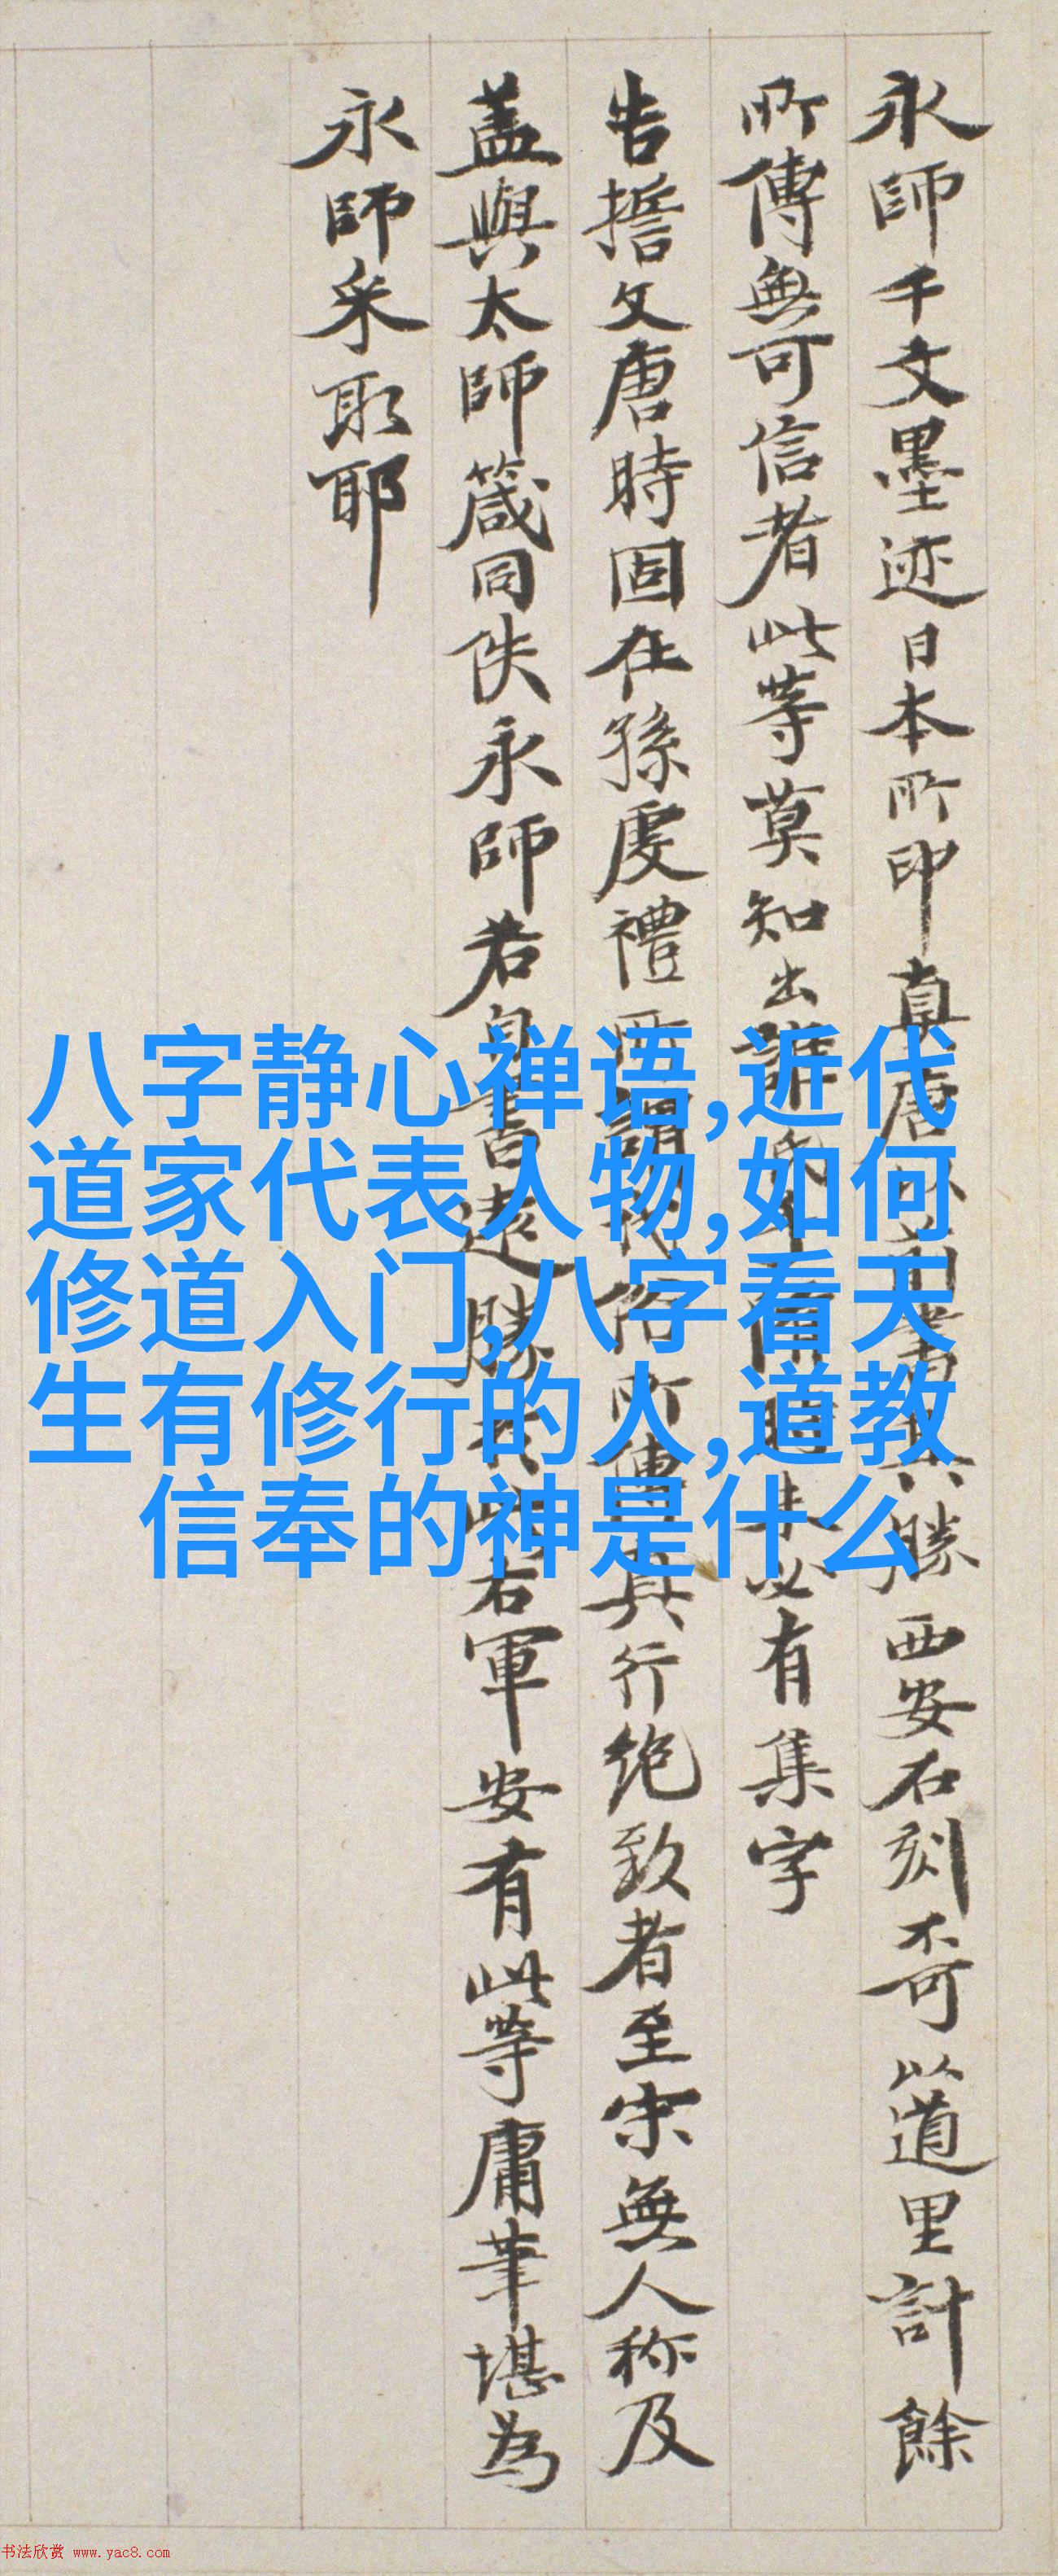 永師千文墨迹日本所印真唐
西安石刻不可以道里計餘
所傳無可信者此等莫知出誰氏
未必有集字
告誓文唐時固在孫虔禮
所傳
其行絶致者至宋無人称及
蓋與太師箴同佚永師若自書遠勝
右軍安有此等庸筆堪為
永師采取耶
八字静心禅语,近代
道家代表人物,如何
修道入门,八字看天
生有修行的人,道教
信奉的神是什么
书法欣赏 www.yac8.com